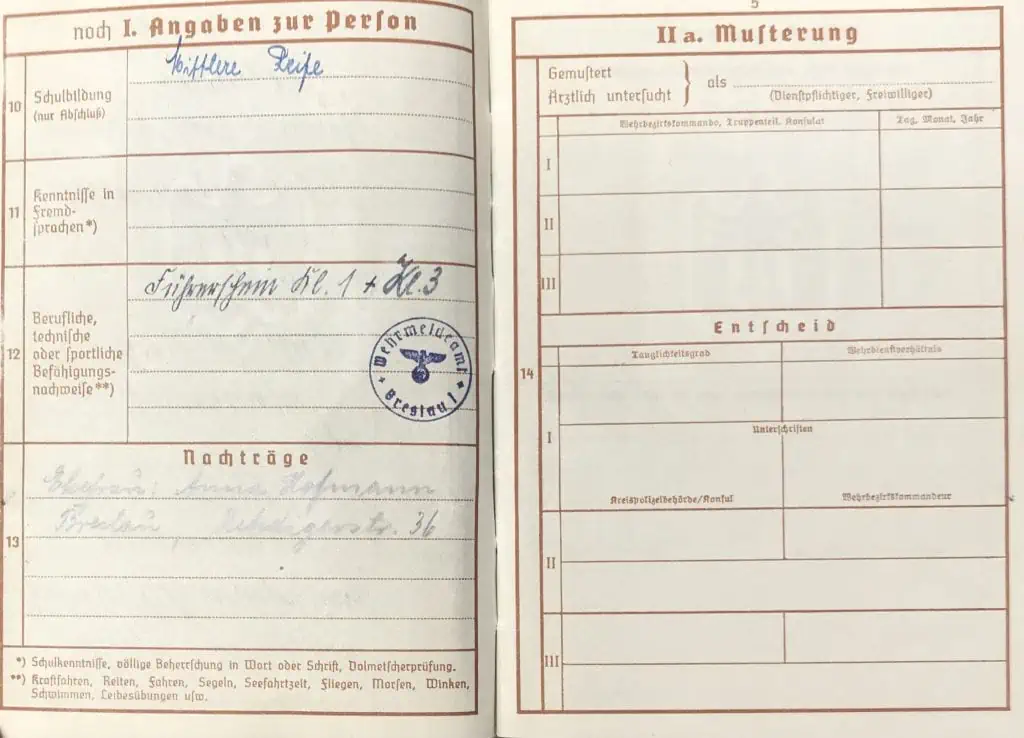 noch I. Angaben zur Person
10
Schulbildung
(nur Abschluß)
Mittlere Reife
11
Kenntnisse in
Fremd-
sprachen*)
12
Berufliche,
technische
oder sportliche
Befähigungs-
nachweise**)
Führerschein Kl. 1 + Kl. 3
Wehrmeldeamt
Breslau 1
13
Nachträge
Ehefrau: Anna Hofmann
Breslau, 36
*) Schulkenntnisse, völlige Beherrschung in Wort oder Schrift, Dolmetscherprüfung.
**) Kraftfahren, Reiten, Fahren, Segeln, Seefahrtzeit, Fliegen, Morsen, Winken,
Schwimmen, Leibesübungen usw.
5
II a. Musterung
Gemustert
Ärztlich untersucht
als
(Dienstpflichtiger, Freiwilliger)
Wehrbezirkskommando, Truppenteil, Konsulat
Tag, Monat, Jahr
I
II
III
Entscheid
14
Tauglichkeitsgrad
Wehrdienstverhältnis
I
Unterschriften
Kreispolizeibehörde/Konsul
Wehrbezirkskommandeur
II
III